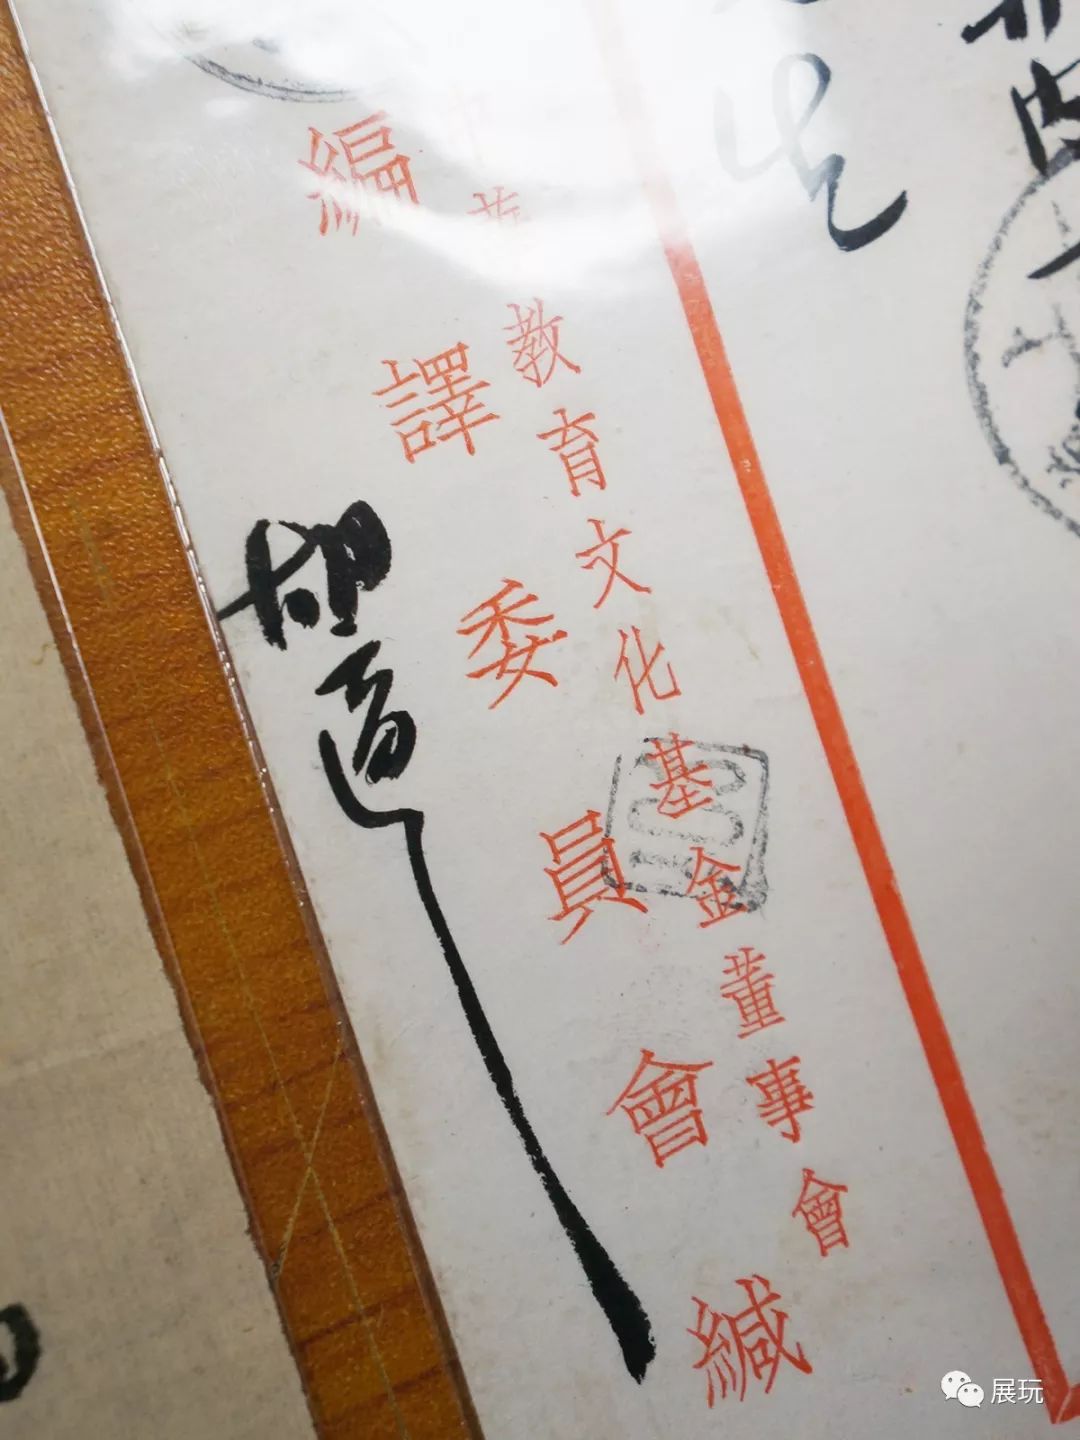 中華教育文化基金董事會
編譯委員會緘
胡適
展玩